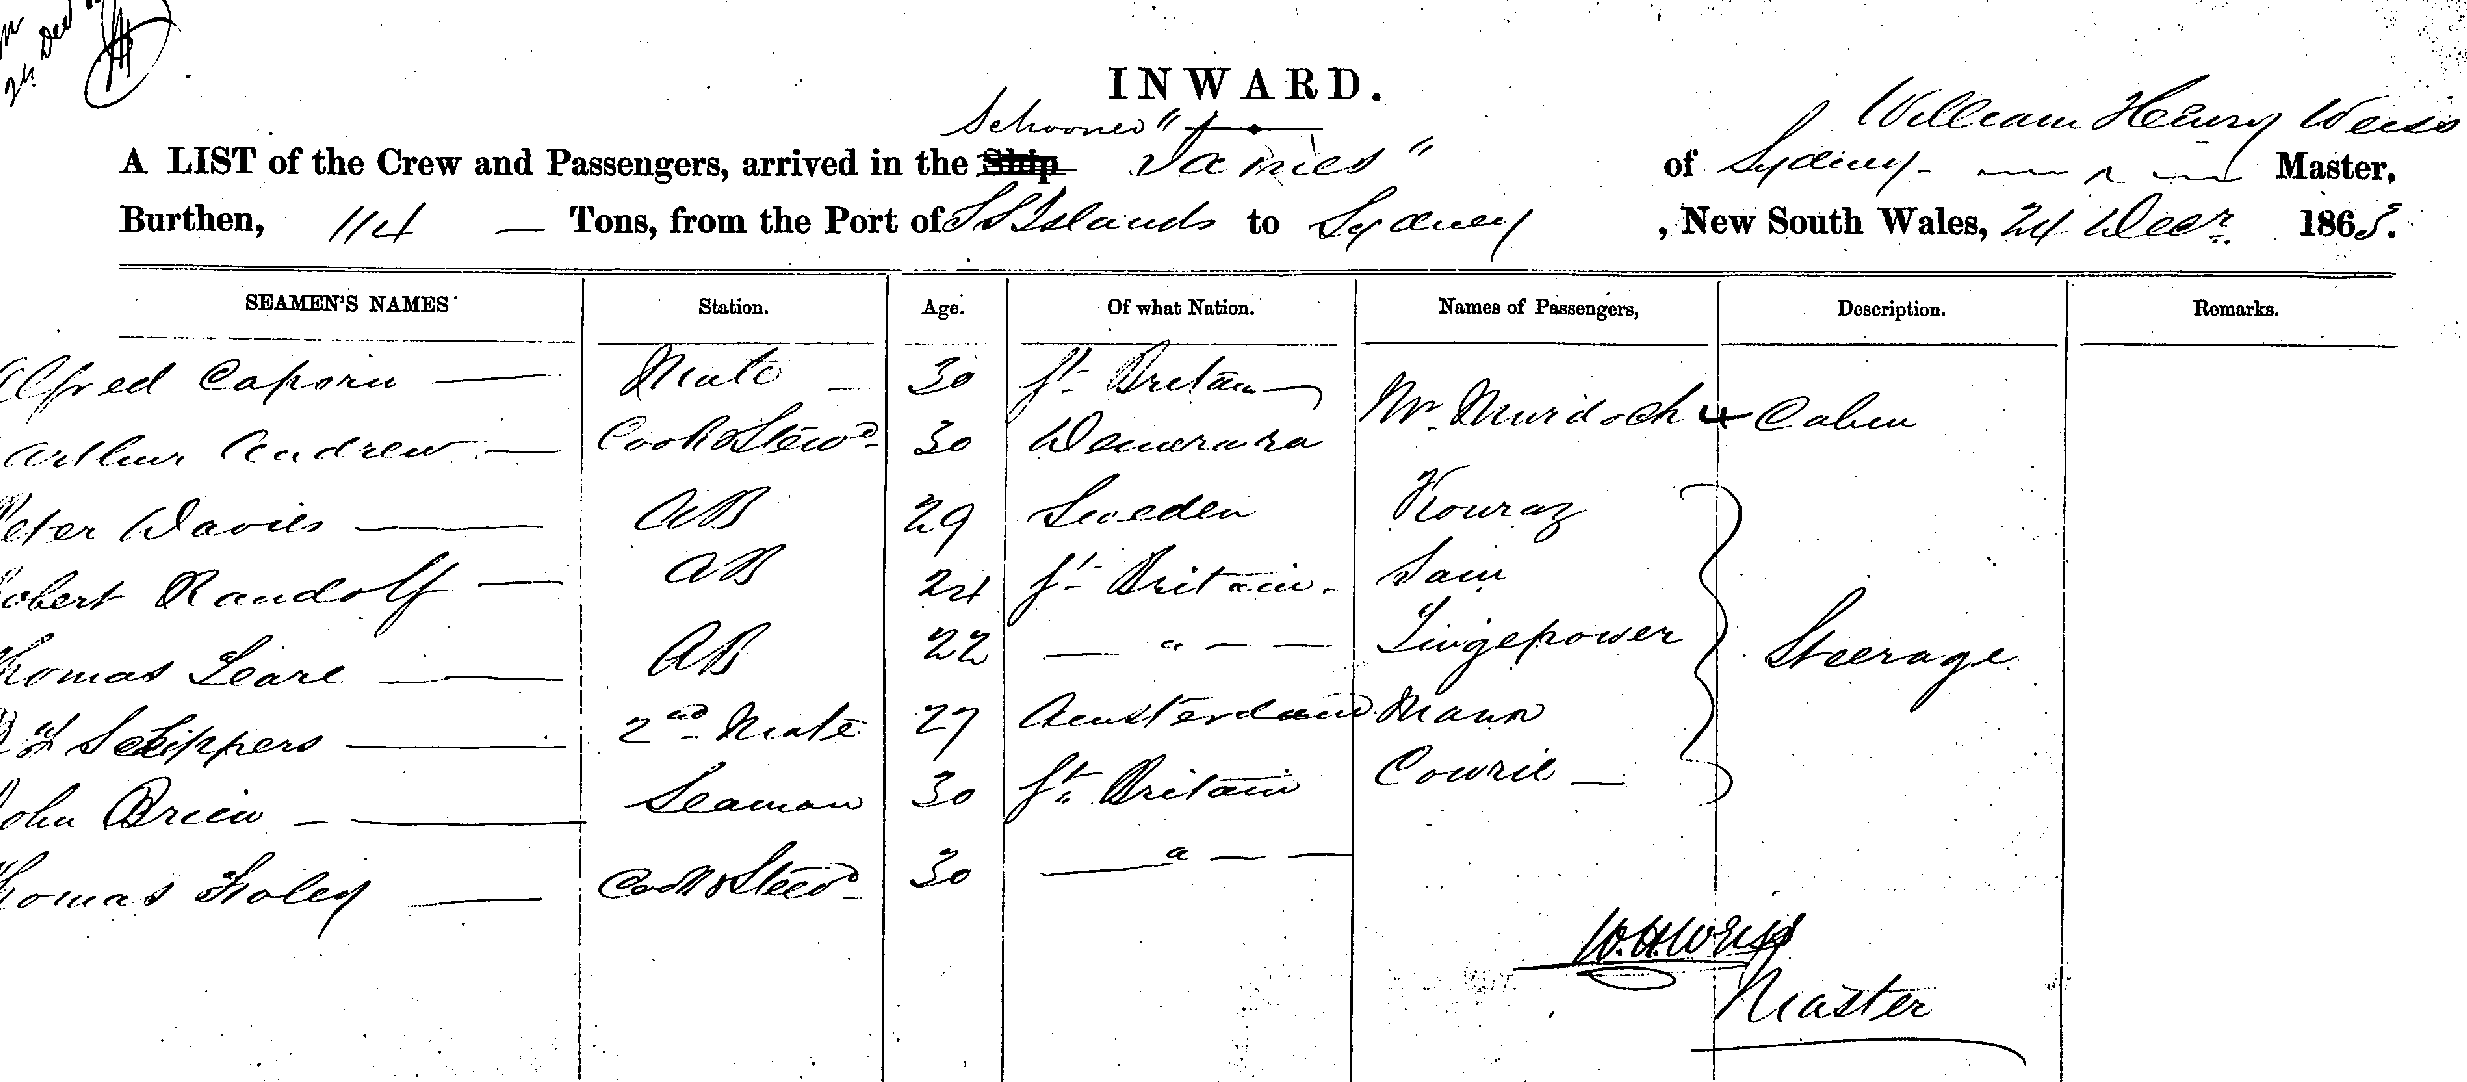 24 Dec
INWARD.
Schooner "
William Henry Weiss
A LIST of the Crew and Passengers, arrived in the Ship James" of Sydney Master,
Burthen, 114 — Tons, from the Port of S S Islands to Sydney, New South Wales, 24 Decr. 1863.
SEAMEN'S NAMES Station. Age. Of what Nation. Names of Passengers, Description. Remarks.
Alfred Caporn — Mate — 30 Gt. Britain
Mr. Murdoch Cabin
Arthur Andrew — Cook & Stewd. 30 Demerara
Peter Davies — AB 29 Sweden Kouraz
Robert Randolf — AB 24 Gt. Britain. Sam
Thomas Leare — AB 22 — " — — Tingepower
Steerage.
Schippers — 2nd Mate 27 Amsterdam Mann
John Brien — Seaman 30 Gt. Britain Cowrie —
Thomas Foley — Cook & Stewd. 30 — " — —
W.H. Weiss
Master